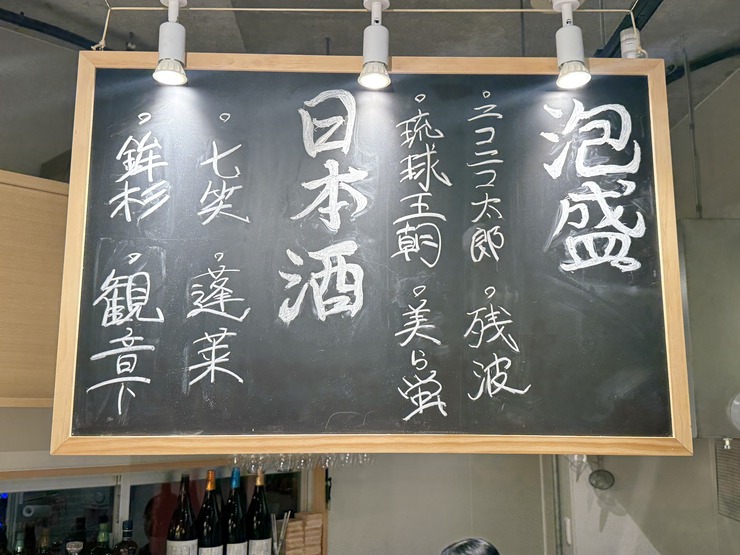 泡盛
。ニコニコ太郎 。残波
。琉球王朝 。美ら蛍
日本酒
。七笑 。蓬莱
。鉾杉 。観音下